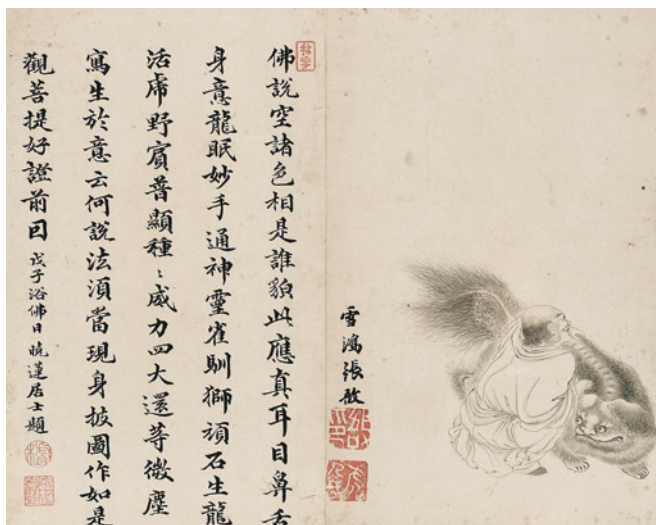 佛說空諸色相是誰貌此應真耳目鼻舌
身意龍眠妙手通神靈雀馴獅頑石生龍
活虎野賓普顯種〻威力四大還等微塵
寫生於意云何說法須當現身披圖作如是
觀菩提好證前因
戊子浴佛日曉蓮居士題
雪鴻張敔